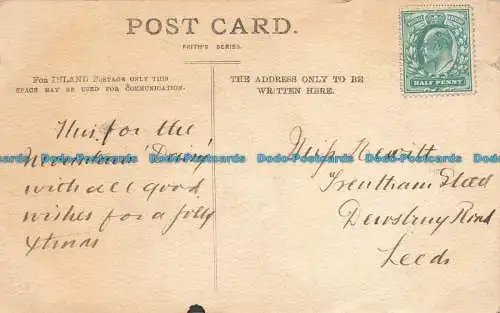 POST CARD.
FRITH'S SERIES.
For INLAND POSTAGE ONLY THIS
SPACE MAY BE USED FOR COMMUNICATION.
THE ADDRESS ONLY TO BE
WRITTEN HERE.
HALF PENNY
This for the
with all good
wishes for a jolly
Xtmas
Miss Hewitt
Trentham Stead
Dewsbury Road
Leeds
Dodo-Postcards Dodo-Postcards Dodo-Postcards Dodo-Postcards Dodo-Postcards